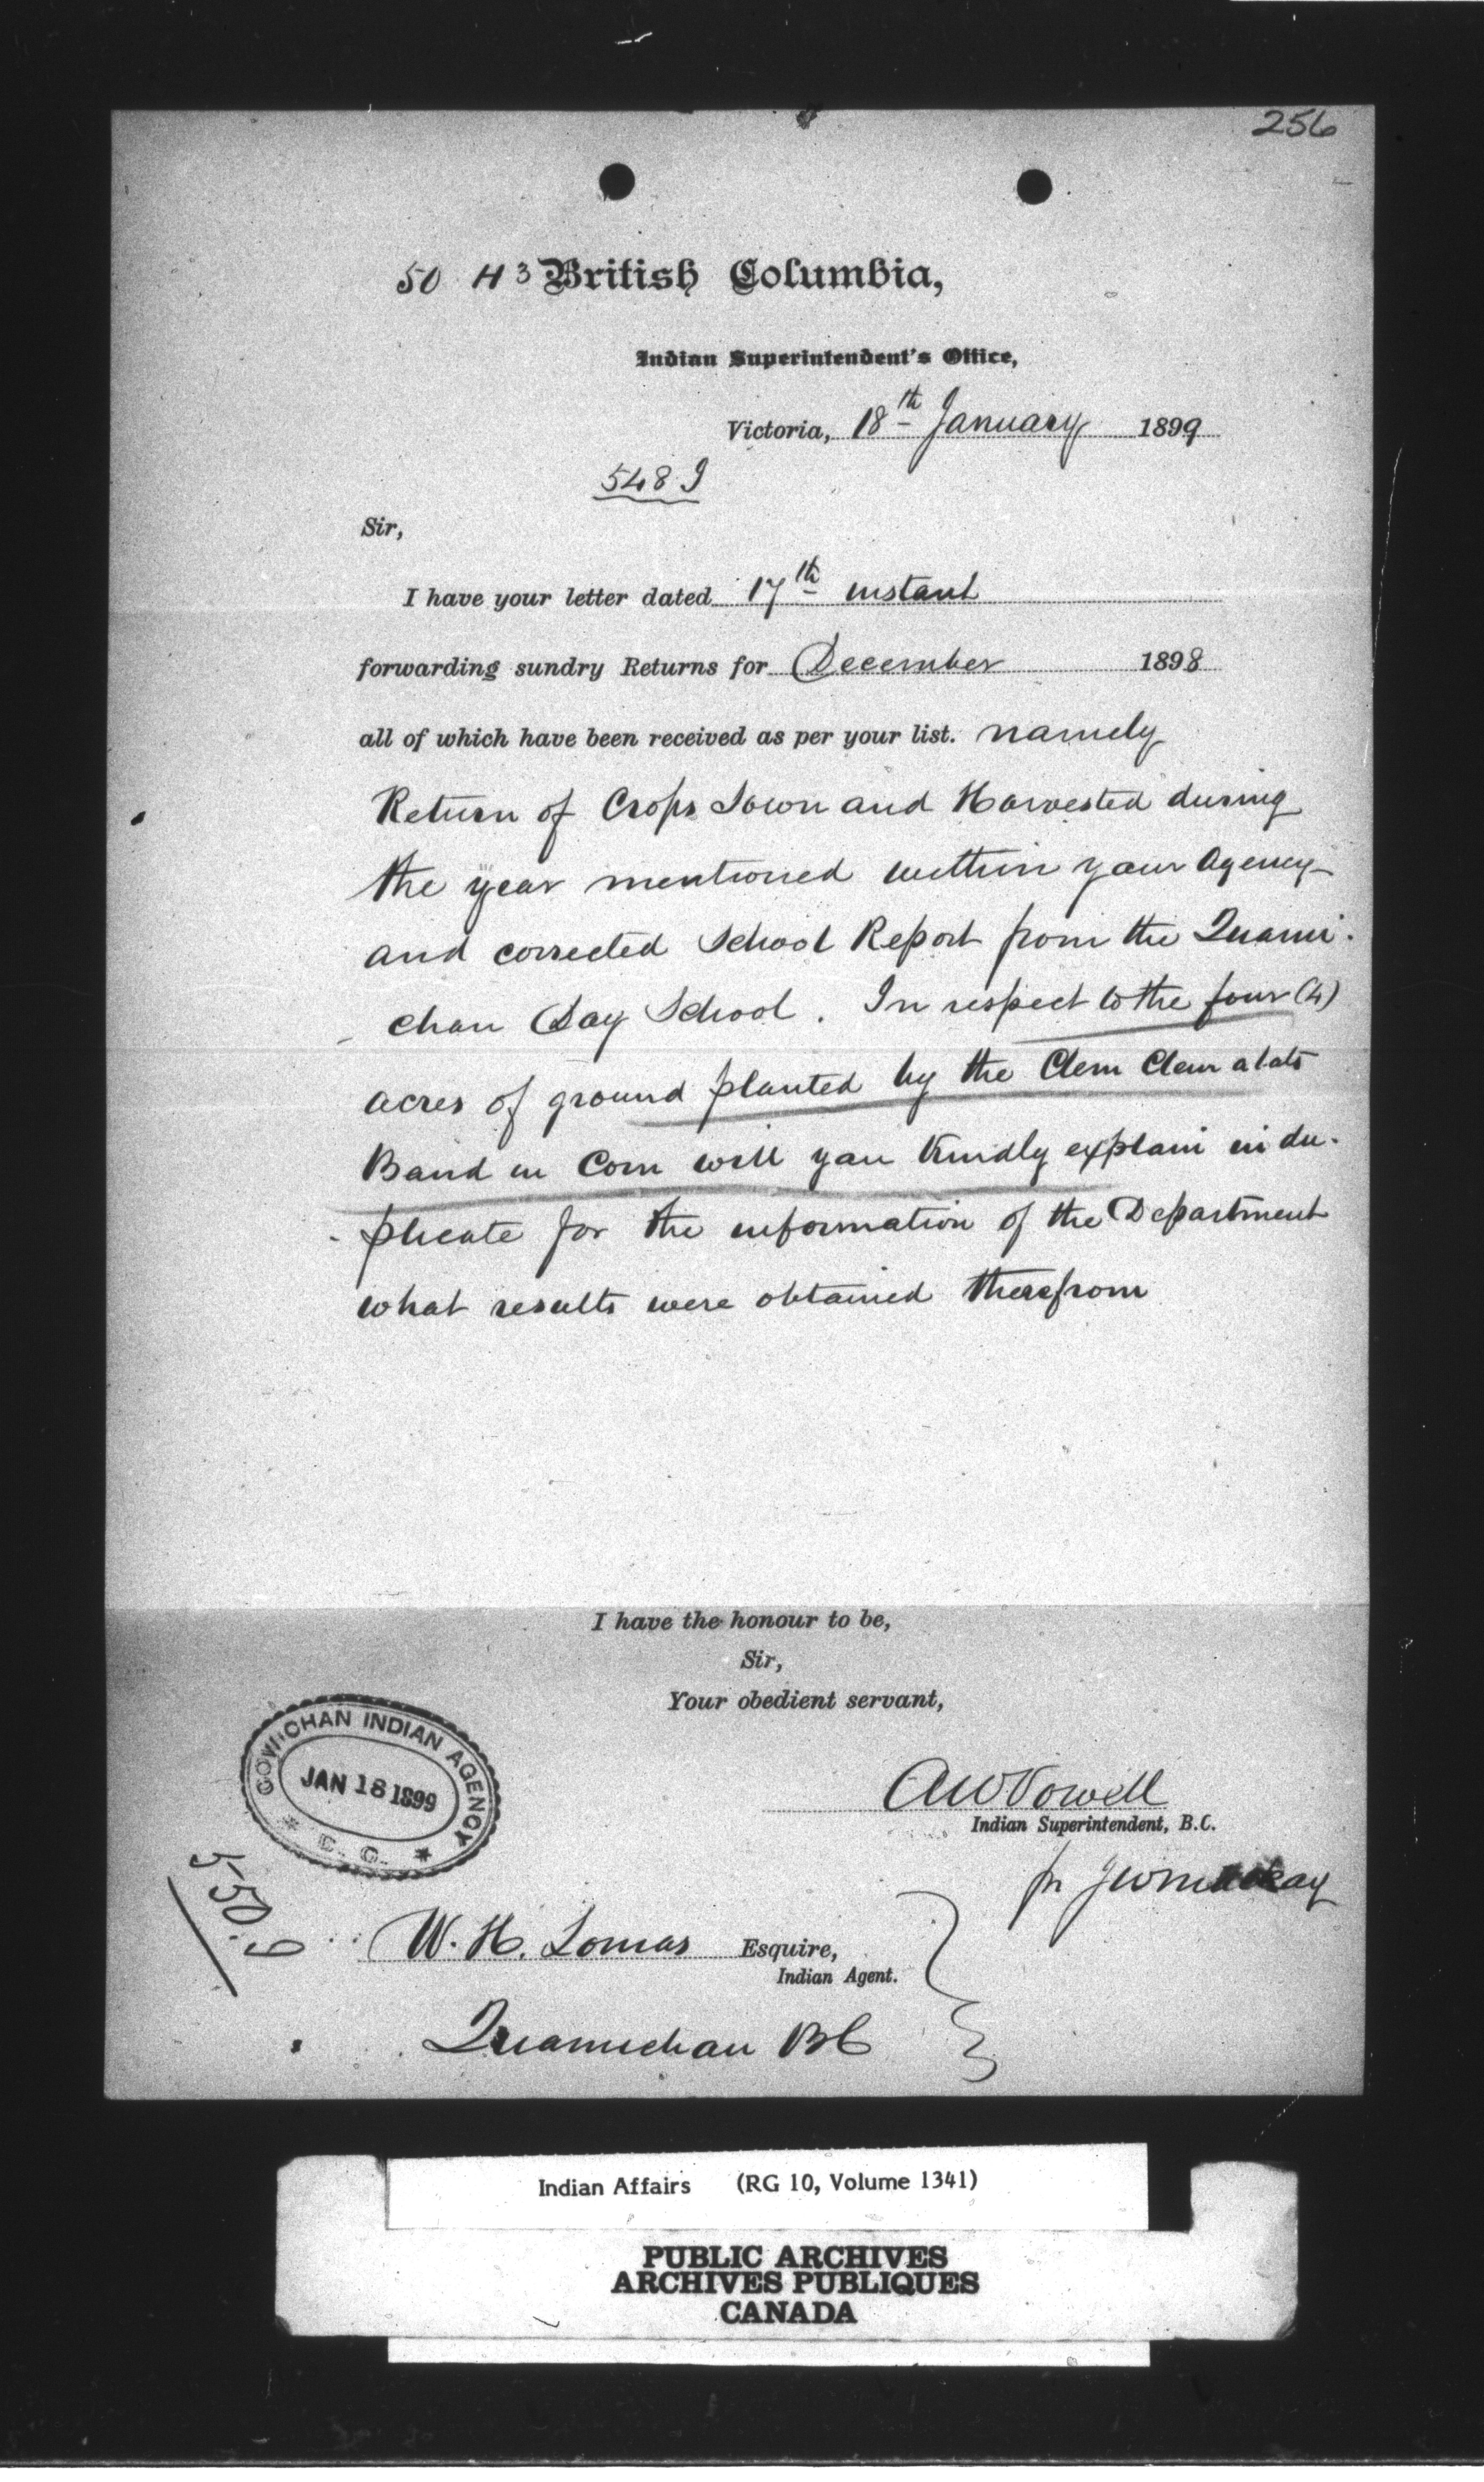 256
50 H 3 British Columbia,
Indian Superintendent's Office,
Victoria, 18th January 1899
548 9
Sir,
I have your letter dated 17th instant
forwarding sundry Returns for December 1898
all of which have been received as per your list. namely
Return of Crops Sown and Harvested during
the year mentioned within your Agency
and corrected School Report from the Quami-
chan Day School. In respect to the four (4)
acres of ground planted by the Clem Clem alats
Band in Corn will you kindly explain in du-
plicate for the information of the Department
what results were obtained therefrom
I have the honour to be,
Sir,
Your obedient servant,
AWVowell
Indian Superintendent, B.C.
pr JWMackay
COWICHAN INDIAN AGENCY
JAN 18 1899
* B. C. *
550.9
W. H. Lomas Esquire,
Indian Agent.
Quamichan BC
Indian Affairs (RG 10, Volume 1341)
PUBLIC ARCHIVES
ARCHIVES PUBLIQUES
CANADA